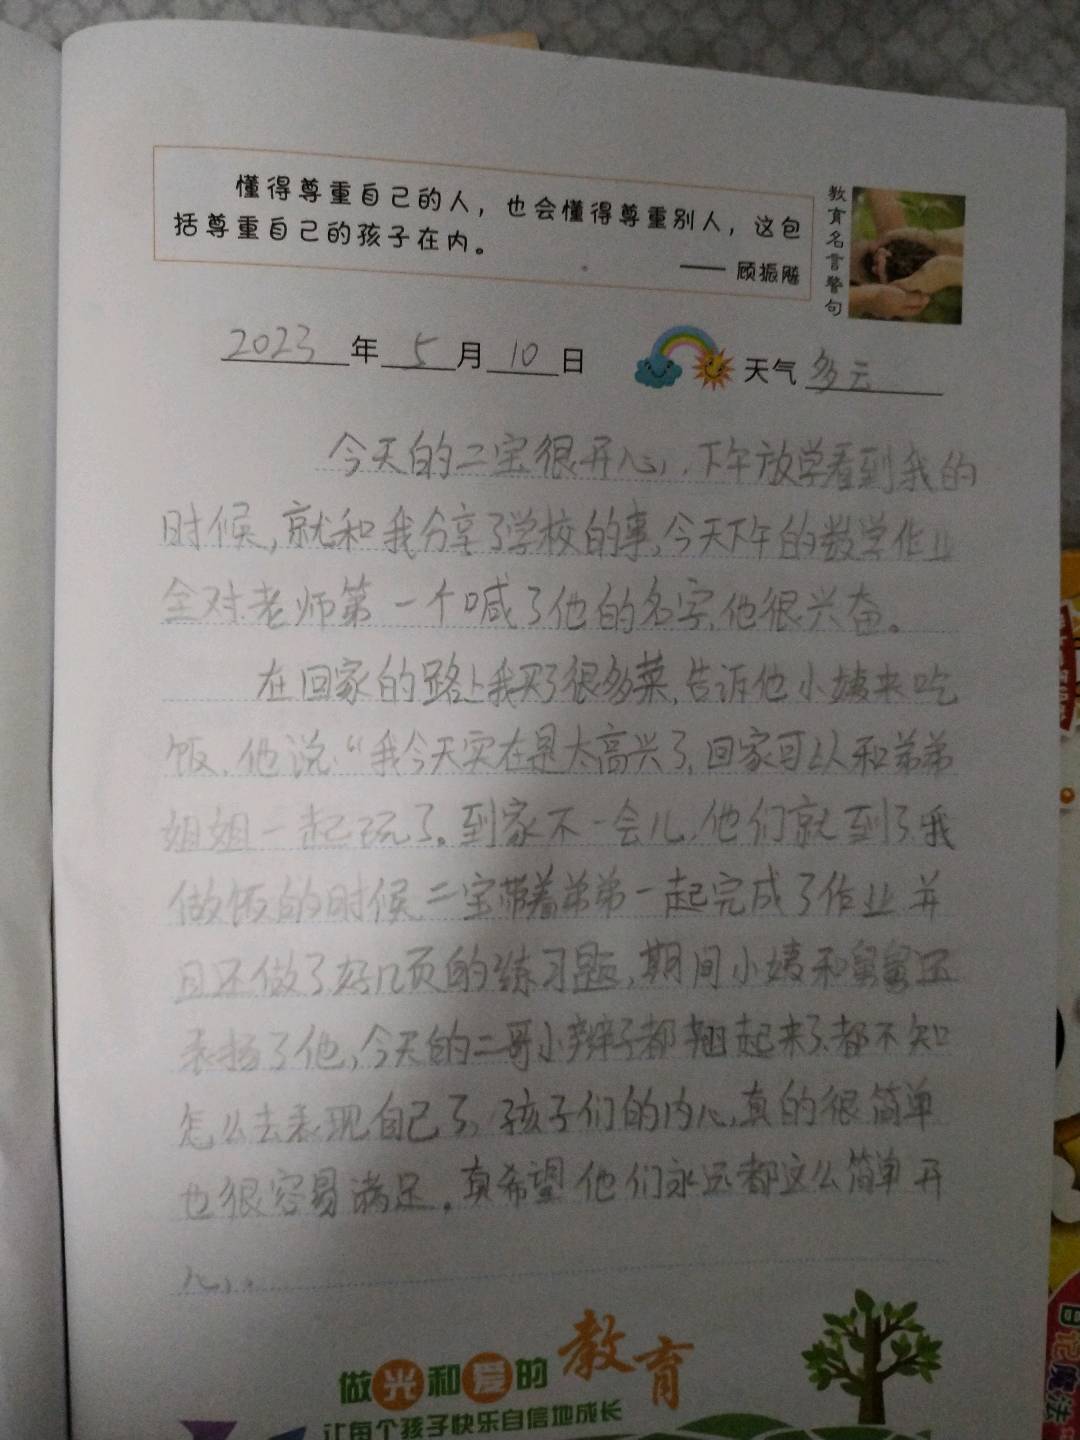 懂得尊重自己的人，也会懂得尊重别人，这包
括尊重自己的孩子在内。
—— 顾振飏
教育名言警句
2023年5月10日 天气 多云
今天的二宝很开心，下午放学看到我的
时候，就和我分享了学校的事，今天下午的数学作业
全对.老师第一个喊了他的名字.他很兴奋。
在回家的路上我买了很多菜，告诉他小姨来吃
饭，他说“我今天实在是太高兴了，回家可以和弟弟
姐姐一起玩了。到家不一会儿，他们就到了我
做饭的时候二宝带着弟弟一起完成了作业并
且还做了好几页的练习题，期间小姨和舅舅还
表扬了他，今天的二哥小辫子都翘起来了都不知
怎么去表现自己了，孩子们的内心，真的很简单
也很容易满足。真希望他们永远都这么简单开
心。
做光和爱的教育
让每个孩子快乐自信地成长
日记魔法